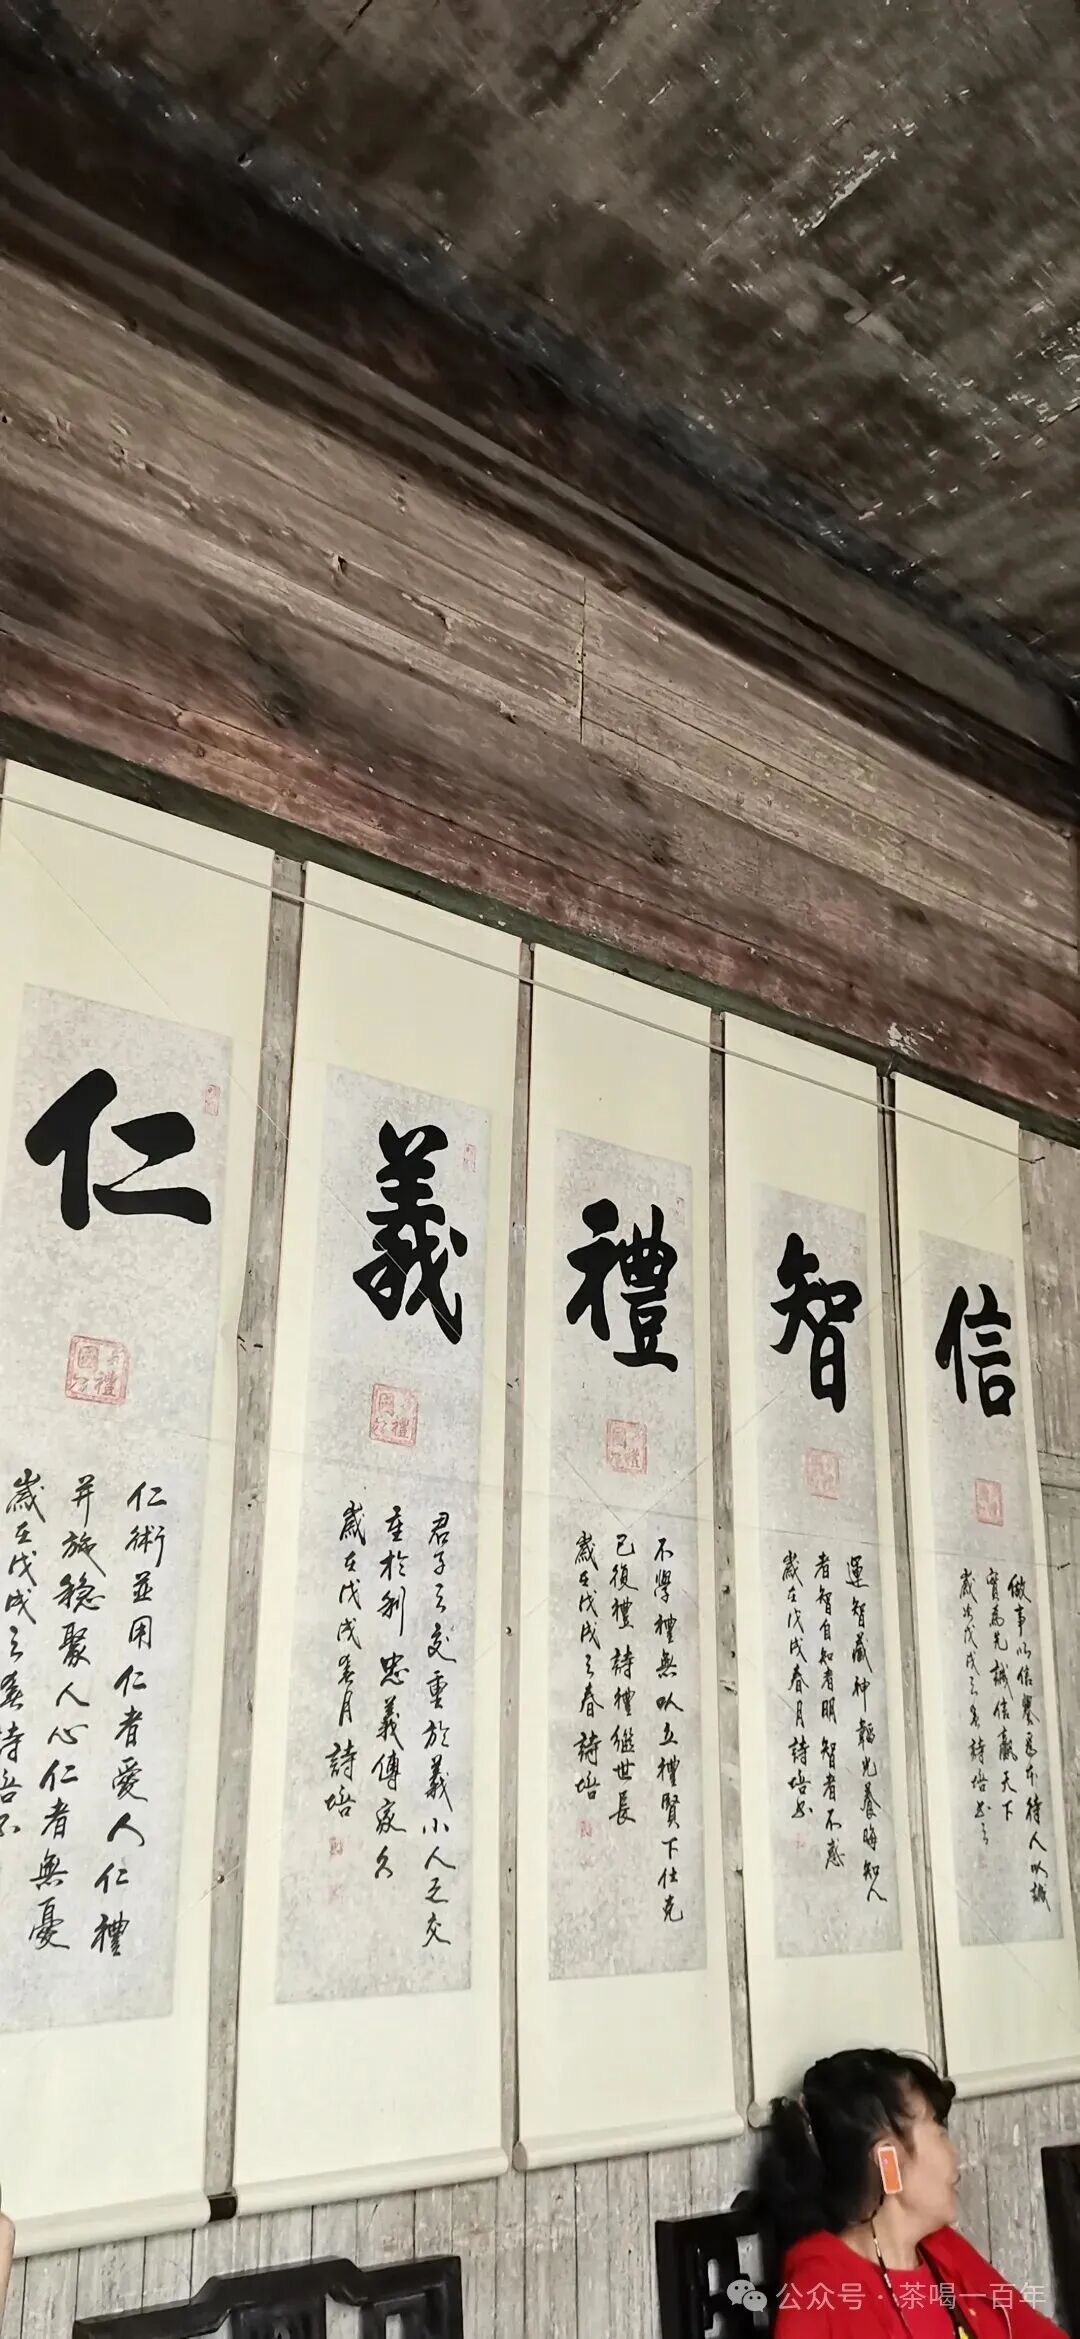 仁
仁術並用仁者愛人仁禮
并施穩聚人心仁者無憂
歲在戊戌之春詩培
義
君子之交重於義小人之交
重於利忠義傳家久
歲在戊戌春月詩培
禮
不學禮無以立禮賢下仕克
己復禮詩禮繼世長
歲在戊戌之春詩培
智
運智藏神韜光養晦知人
者智自知者明智者不惑
歲在戊戌春月詩培書
信
做事以信譽為本待人以誠
實為先誠信贏天下
歲次戊戌之春詩培書之
公众号·茶喝一百年